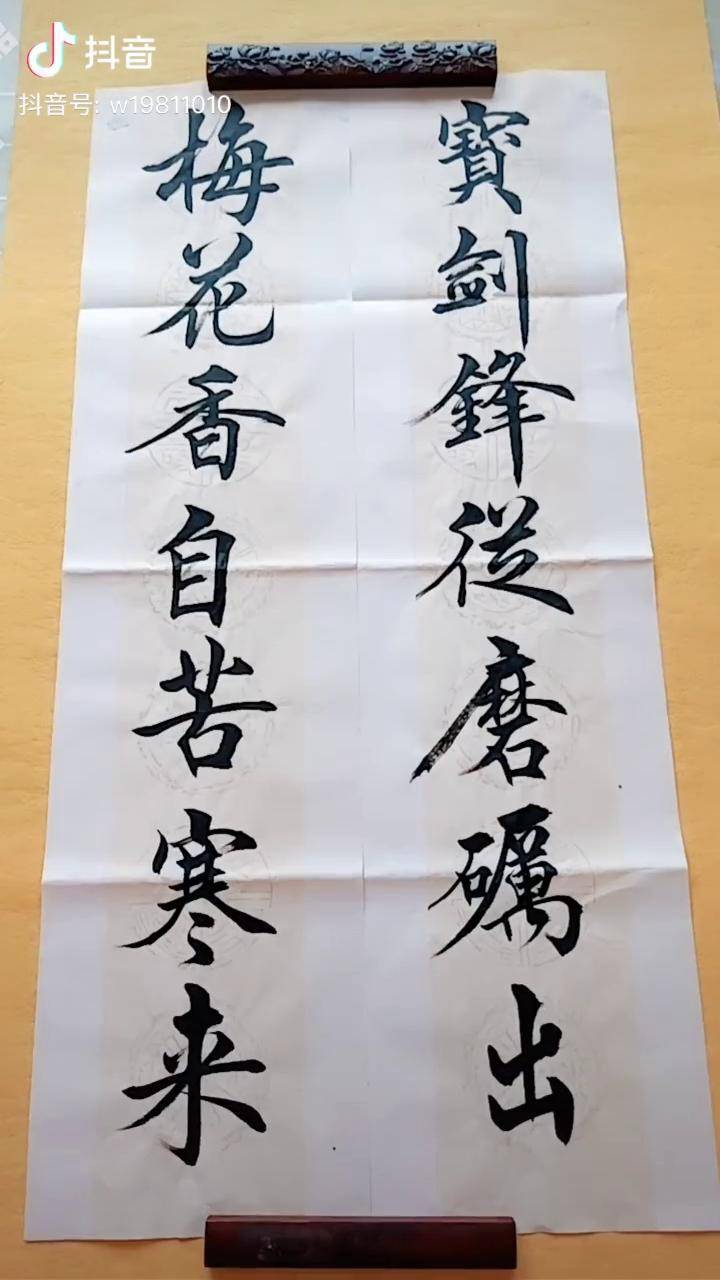 抖音
抖音号: w19811010
寳劍鋒從磨礪出
梅花香自苦寒来